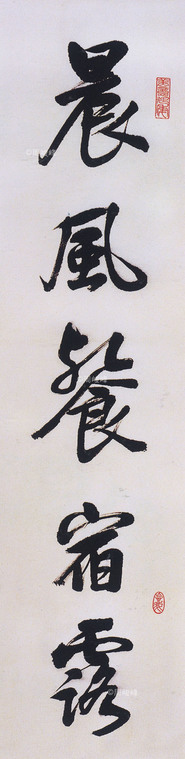 晨風餐宿露